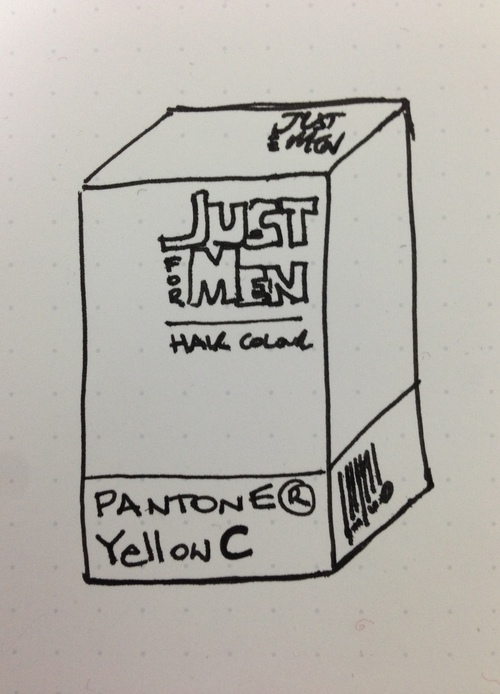 JUST
FOR MEN
JUST
FOR MEN
HAIR COLOUR
PANTONE®
Yellow C